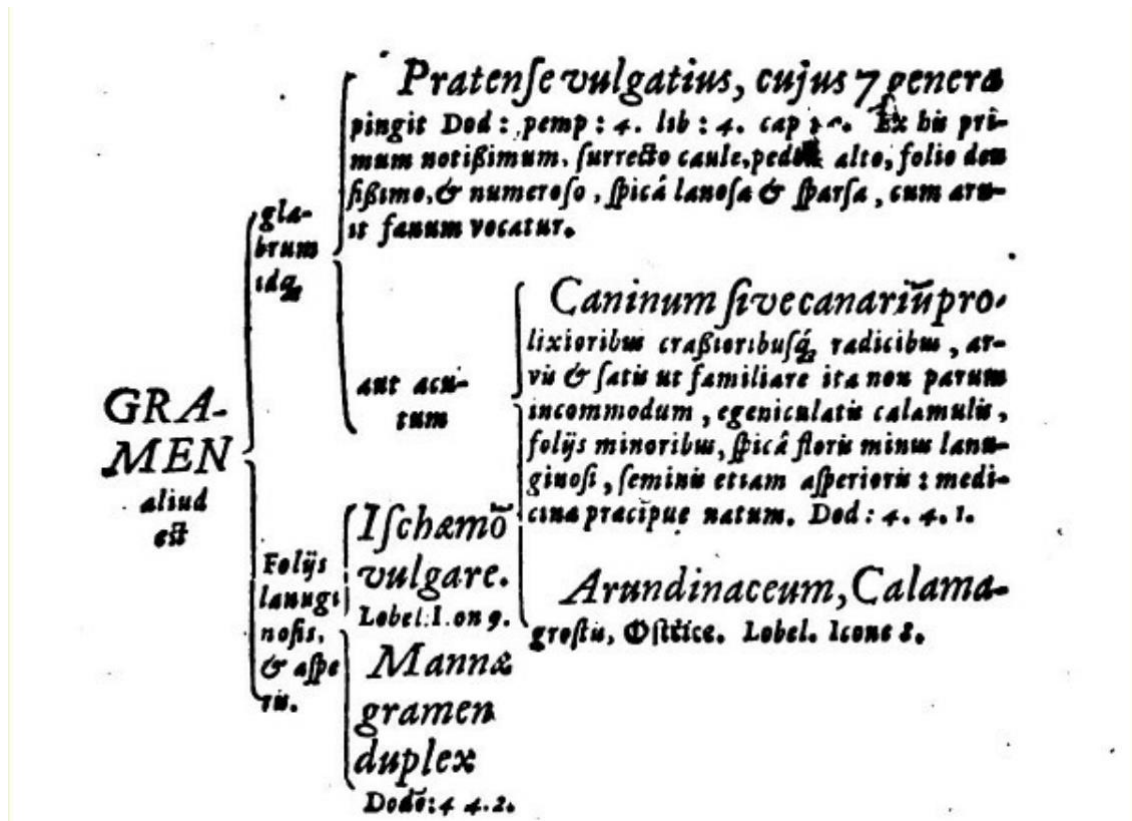 GRA-
MEN
aliud
est
gla-
brum
idq́;
Pratenſe vulgatius, cujus 7 genera
pingit Dod: pemp: 4. lib: 4. cap Ex his pri-
mum notißimum, ſurrecto caule, pedis alto, folio den
ſißimo, & numeroſo, ſpicâ lanoſa & ſparſa, cum aru-
it fœnum vocatur.
aut acu-
tum
Caninum ſive canariũ pro-
lixioribus craßioribuſq́; radicibus, ar-
vis & ſatis ut familiare ita non parum
incommodum, egeniculatis calamulis,
folijs minoribus, ſpicâ floris minus lanu-
ginoſi, ſeminis etiam aſperioris: medi-
cina præcipuę natum. Dod: 4. 4. 1.
Arundinaceum, Calama-
groſtis, Lobel. Icone 8.
Folijs
lanugi
noſis,
& aſpe
ris.
Iſchæmõ
vulgare.
Lobel. I. on 9.
Mannæ
gramen
duplex
Dodõ: 4 4. 2.